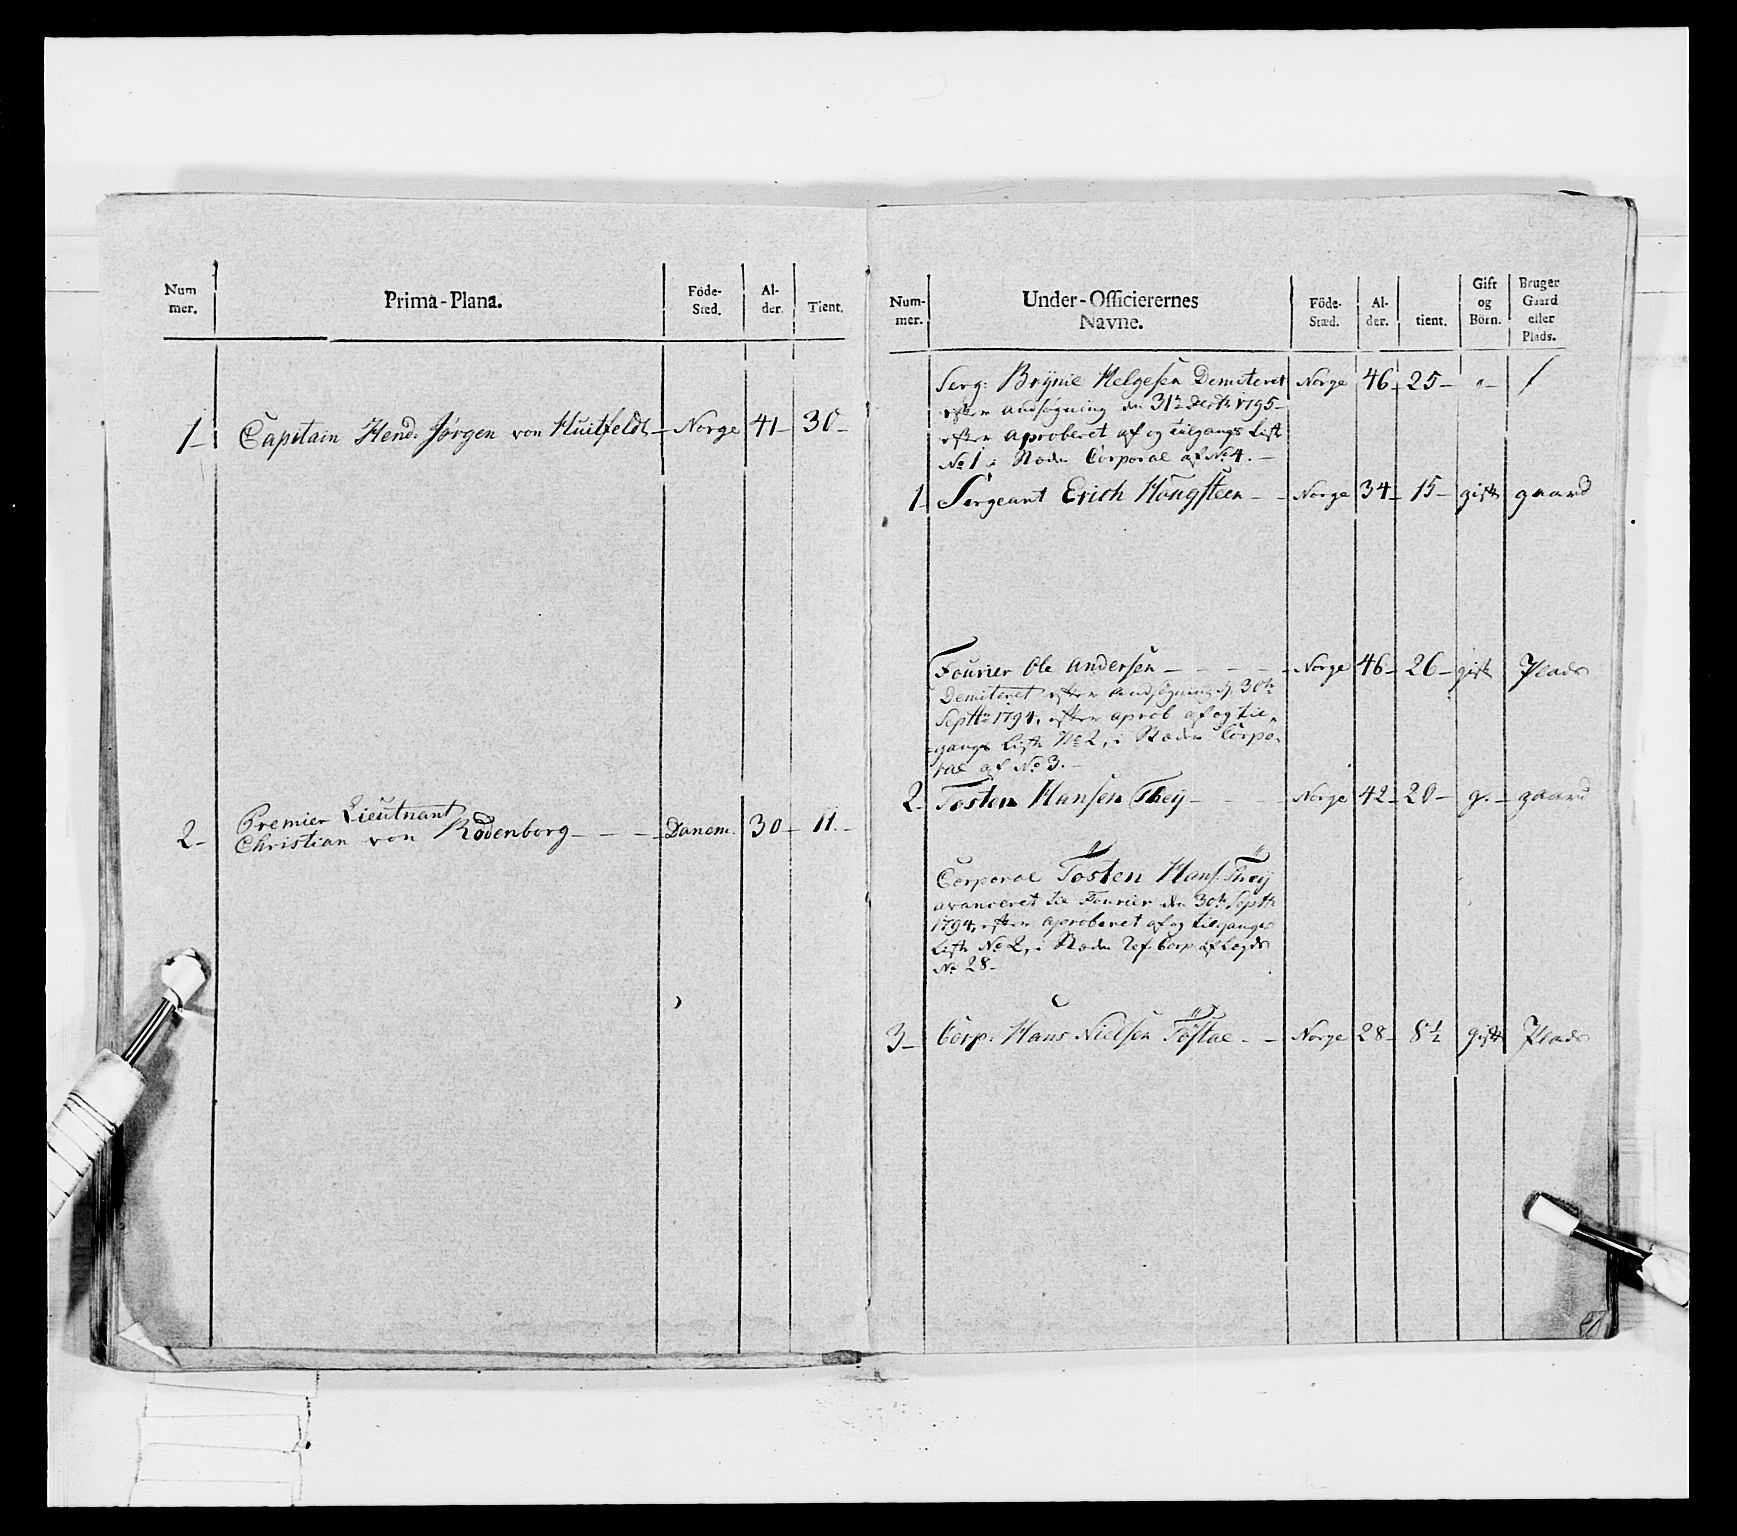 Num
mer.
Prima-Plana.
Föde-
Sted.
Al-
der.
Tient.
1- Capitain Hend: Jørgen von Huitfeldt- Norge 41- 30-
Premier Lieutnant
2- Christian von Rødenborg - - - - Danem. 30- 11.-
Num-
mer.
Under-Officierernes
Navne.
Föde-
Stæd.
Al-
der.
tient.
Gift
og
Börn.
Bruger
Gaard
eller
Plads.
Serg: Brynil Helgesen Demiteret Norge 46- 25- "-
efter andsøgning den 31te Decbr 1795-
efter aproberet af og tilgangs List
No 1 i Stæden Corporal af No 4. -
1- Sergeant Erich Hougsteen - - Norge 34- 15- gift gaard
Fourier Ole Andersen - - - - - Norge 46- 26- gift Plads
Demiteret efter andsøgning d. 30te
Septbr 1794, efter aprob af og til-
gangs List No 2, i Stæden Corpo-
ral af No 3. -
2- Tosten Hansen They - - - Norge 42- 20- g. - gaard
Corporal Tosten Hans: They
avanceret til Fourier den 30te Septbr
1794, efter aproberet af og tilgangs
List No 2, i Stæden Ref. Corp. af Lægds
No 28-
3- Corp: Hans Nielsen Tøstae - - Norge 28- 8½ gift Plads